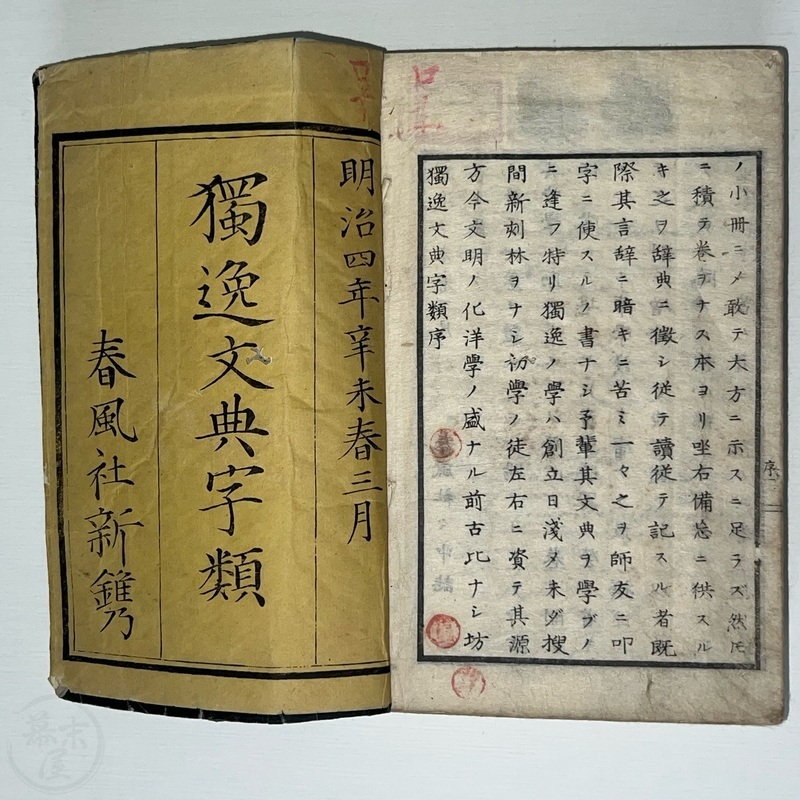 明治四年辛未春三月
獨逸文典字類
春風社新鐫
獨逸文典字類序
方今文明ノ化洋學ノ盛ナル前古比ナシ坊
間新刻林ヲナシ初學ノ徒左右ニ資テ其源
ニ逢フ特リ獨逸ノ學ハ創立日淺ク未ダ搜
字ニ使スルノ書ナシ予輩其文典ヲ學ブノ
際其言辞ニ暗キニ苦ミ一々之ヲ師友ニ叩
キ之ヲ辞典ニ徴シ從テ讀從テ記スル者既
ニ積テ巻ヲナス本ヨリ坐右備忘ニ供スル
ノ小冊ニメ敢テ大方ニ示スニ足ラズ然𪜈
序
幕末屋